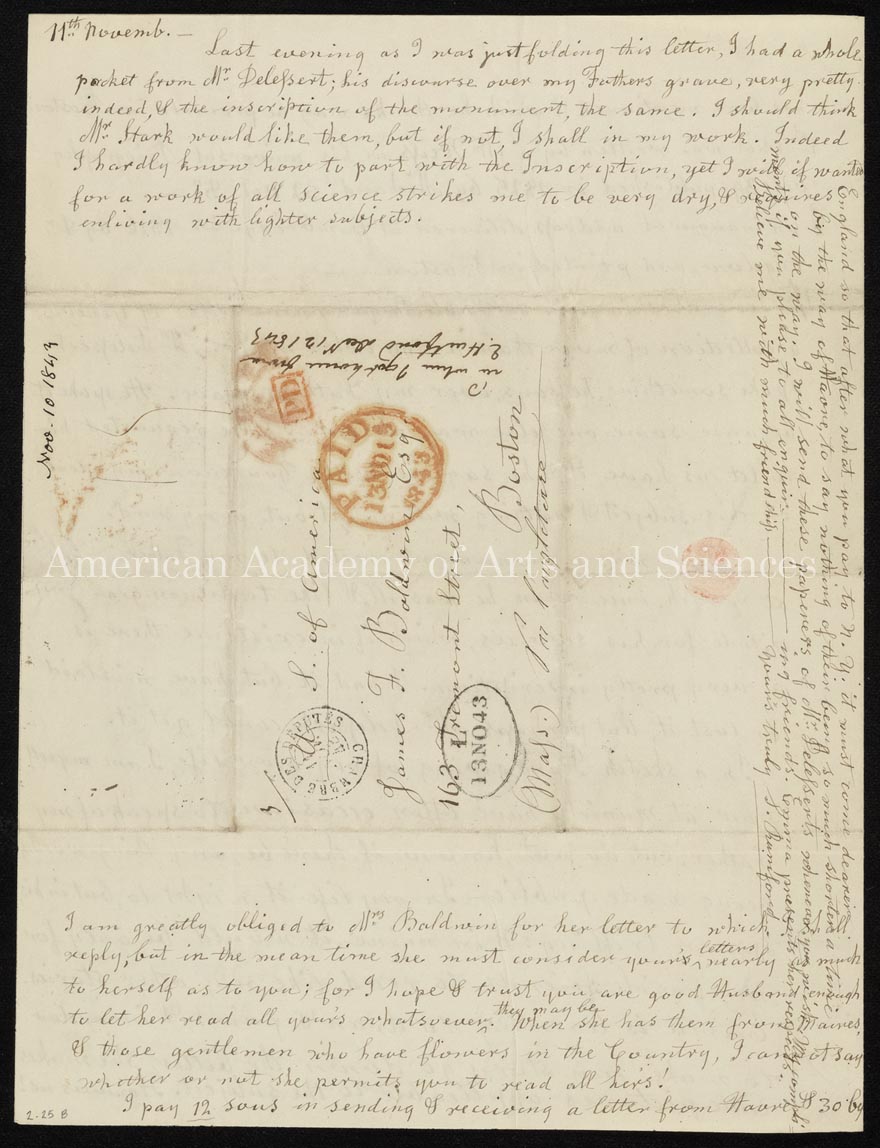 11th Novemb. —
Last evening as I was just folding this letter, I had a whole
packet from Mr. Delessert; his discourse over my Fathers grave, very pretty
indeed, & the inscription of the monument, the same. I should think
Mr. Stark would like them, but if not, I shall in my work. Indeed
I hardly know how to part with the Inscription, yet I will if wanted
for a work of all science strikes me to be very dry, & requires
enliving with lighter subjects.
Nov. 10 1843
in when I got home from
E. Hartford Decr 12 1843
PD
PAID
13NO13
1843
S. of America
James F. Baldwin Esq
163 Tremont Street,
Boston
(Mass.)
CHAMBRE DES DEPUTES
L
13NO43
3/
American Academy of Arts and Sciences
I am greatly obliged to Mrs Baldwin for her letter to which I shall
reply, but in the mean time she must consider your's letters nearly as much
to herself as to you; for I hope & trust you are good Husband enough
to let her read all your's whatsoever they may be. When she has them from Maires,
& those gentlemen who have flowers in the Country, I can not say
whether or not she permits you to read all her's!
I pay 12 sous in sending & receiving a letter from Havre & 30 by
England so that after what you pay to N. Y. it must come dearer
by the way of Havre, to say nothing of their being so much shorter a time
on the way. I will send these paperers of Mr. Delesserts whenever you wish. My compli-
ments if you please to all enquiring friends, Emma presents her respects.
Believe me with much friendship
Your's truly S. Rumford
2-25 B